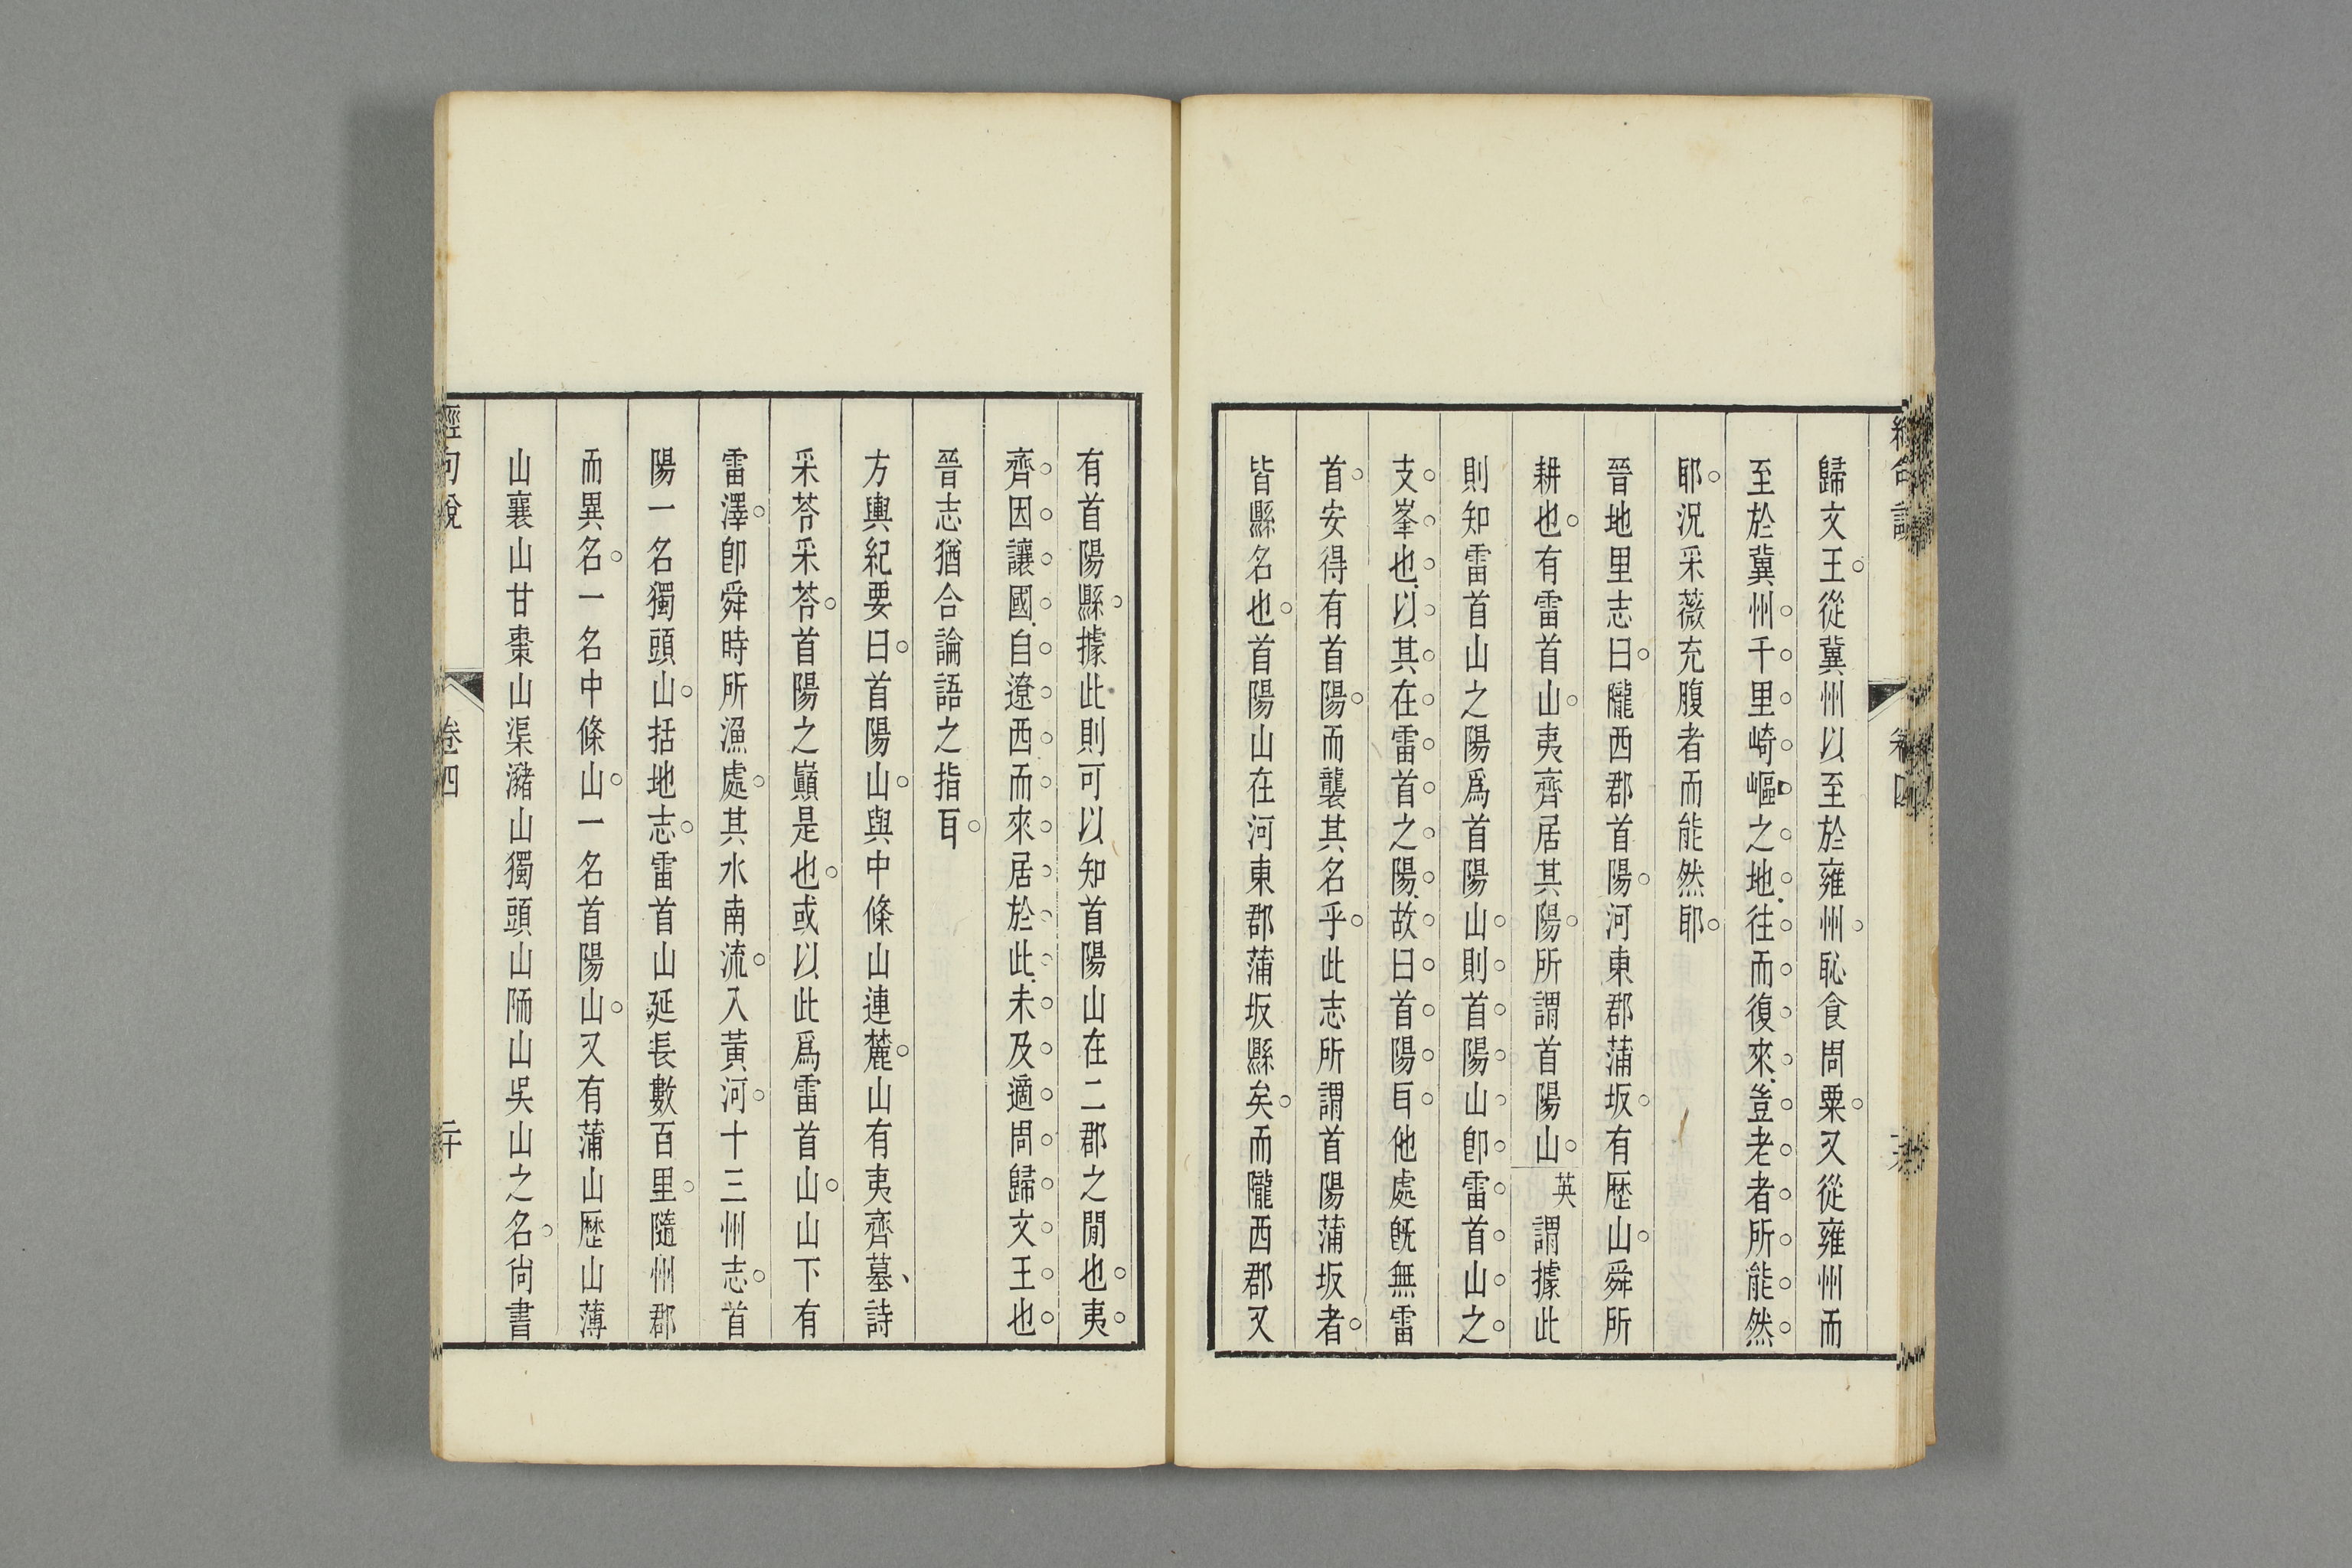 歸文王從冀州以至於雍州恥食周粟又從雍州而
至於冀州千里崎嶇之地往而復來豈老者所能然
耶況采薇充腹者而能然耶
晉地里志曰隴西郡首陽河東郡蒲坂有歷山舜所
耕也有雷首山夷齊居其陽所謂首陽山英謂據此
則知雷首山之陽爲首陽山則首陽山卽雷首山之
支峯也以其在雷首之陽故曰首陽耳他處旣無雷
首安得有首陽而襲其名乎此志所謂首陽蒲坂者
皆縣名也首陽山在河東郡蒲坂縣矣而隴西郡又
有首陽縣據此則可以知首陽山在二郡之閒也夷
齊因讓國自遼西而來居於此未及適周歸文王也
晉志猶合論語之指耳
方輿紀要曰首陽山與中條山連麓山有夷齊墓詩
采苓采苓首陽之巓是也或以此爲雷首山山下有
雷澤卽舜時所漁處其水南流入黃河十三州志首
陽一名獨頭山括地志雷首山延長數百里隨州郡
而異名一名中條山一名首陽山又有蒲山歷山薄
山襄山甘棗山渠瀦山獨頭山陑山吳山之名尙書
經句說
卷四
二十